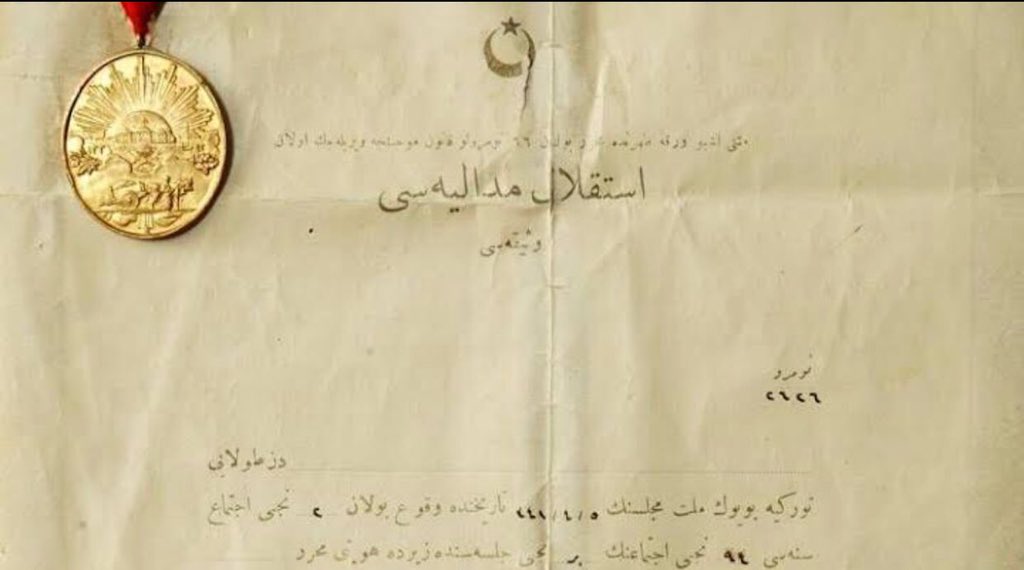 متنی اشبو ورقه ظهرنده محرر بولنان ٦٦ نومرولو قانون موجبنجه ويريله‌مك اولان
استقلال مداليه‌سی
وثيقه‌سی
نومرو
٢٦٢٦
توركيه بويوك ملت مجلسنك تاريخنده وقوع بولان ٢ نجی اجتماع
سنه‌سی ٩٤ نجی اجتماعنك بر نجی جلسه‌سنده زيرده هويتی محرر